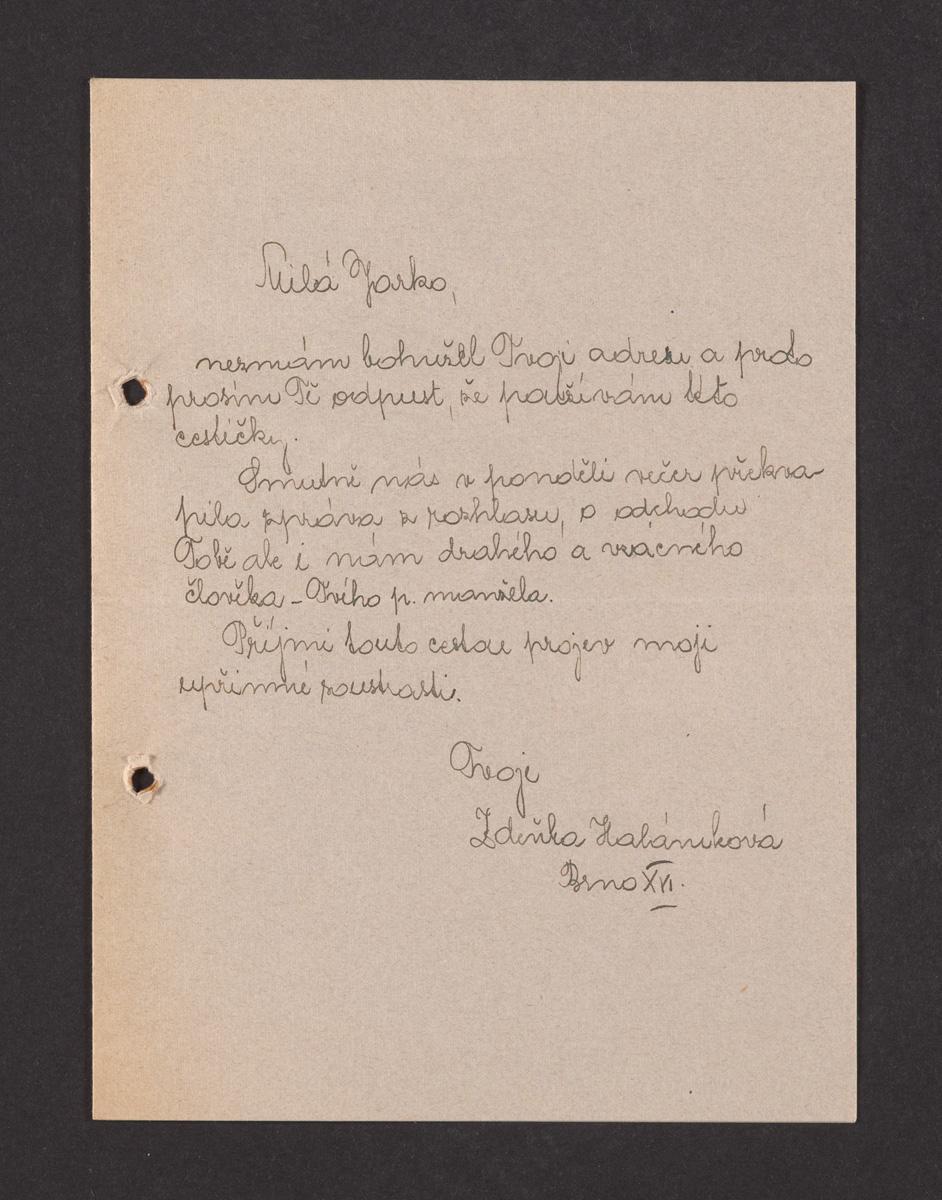 Milá Jarko,
neznám bohužel Tvoji adresu a proto
prosím Tě odpusť, že používám této
cestičky.
Smutně nás v pondělí večer překva-
pila zpráva z rozhlasu, o odchodu
Tobě ale i nám drahého a vzácného
člověka - Tvého p. manžela.
Přijmi touto cestou projev mojí
upřimné soustrasti.
Tvoje
Zdeňka Halámková
Brno XVI.